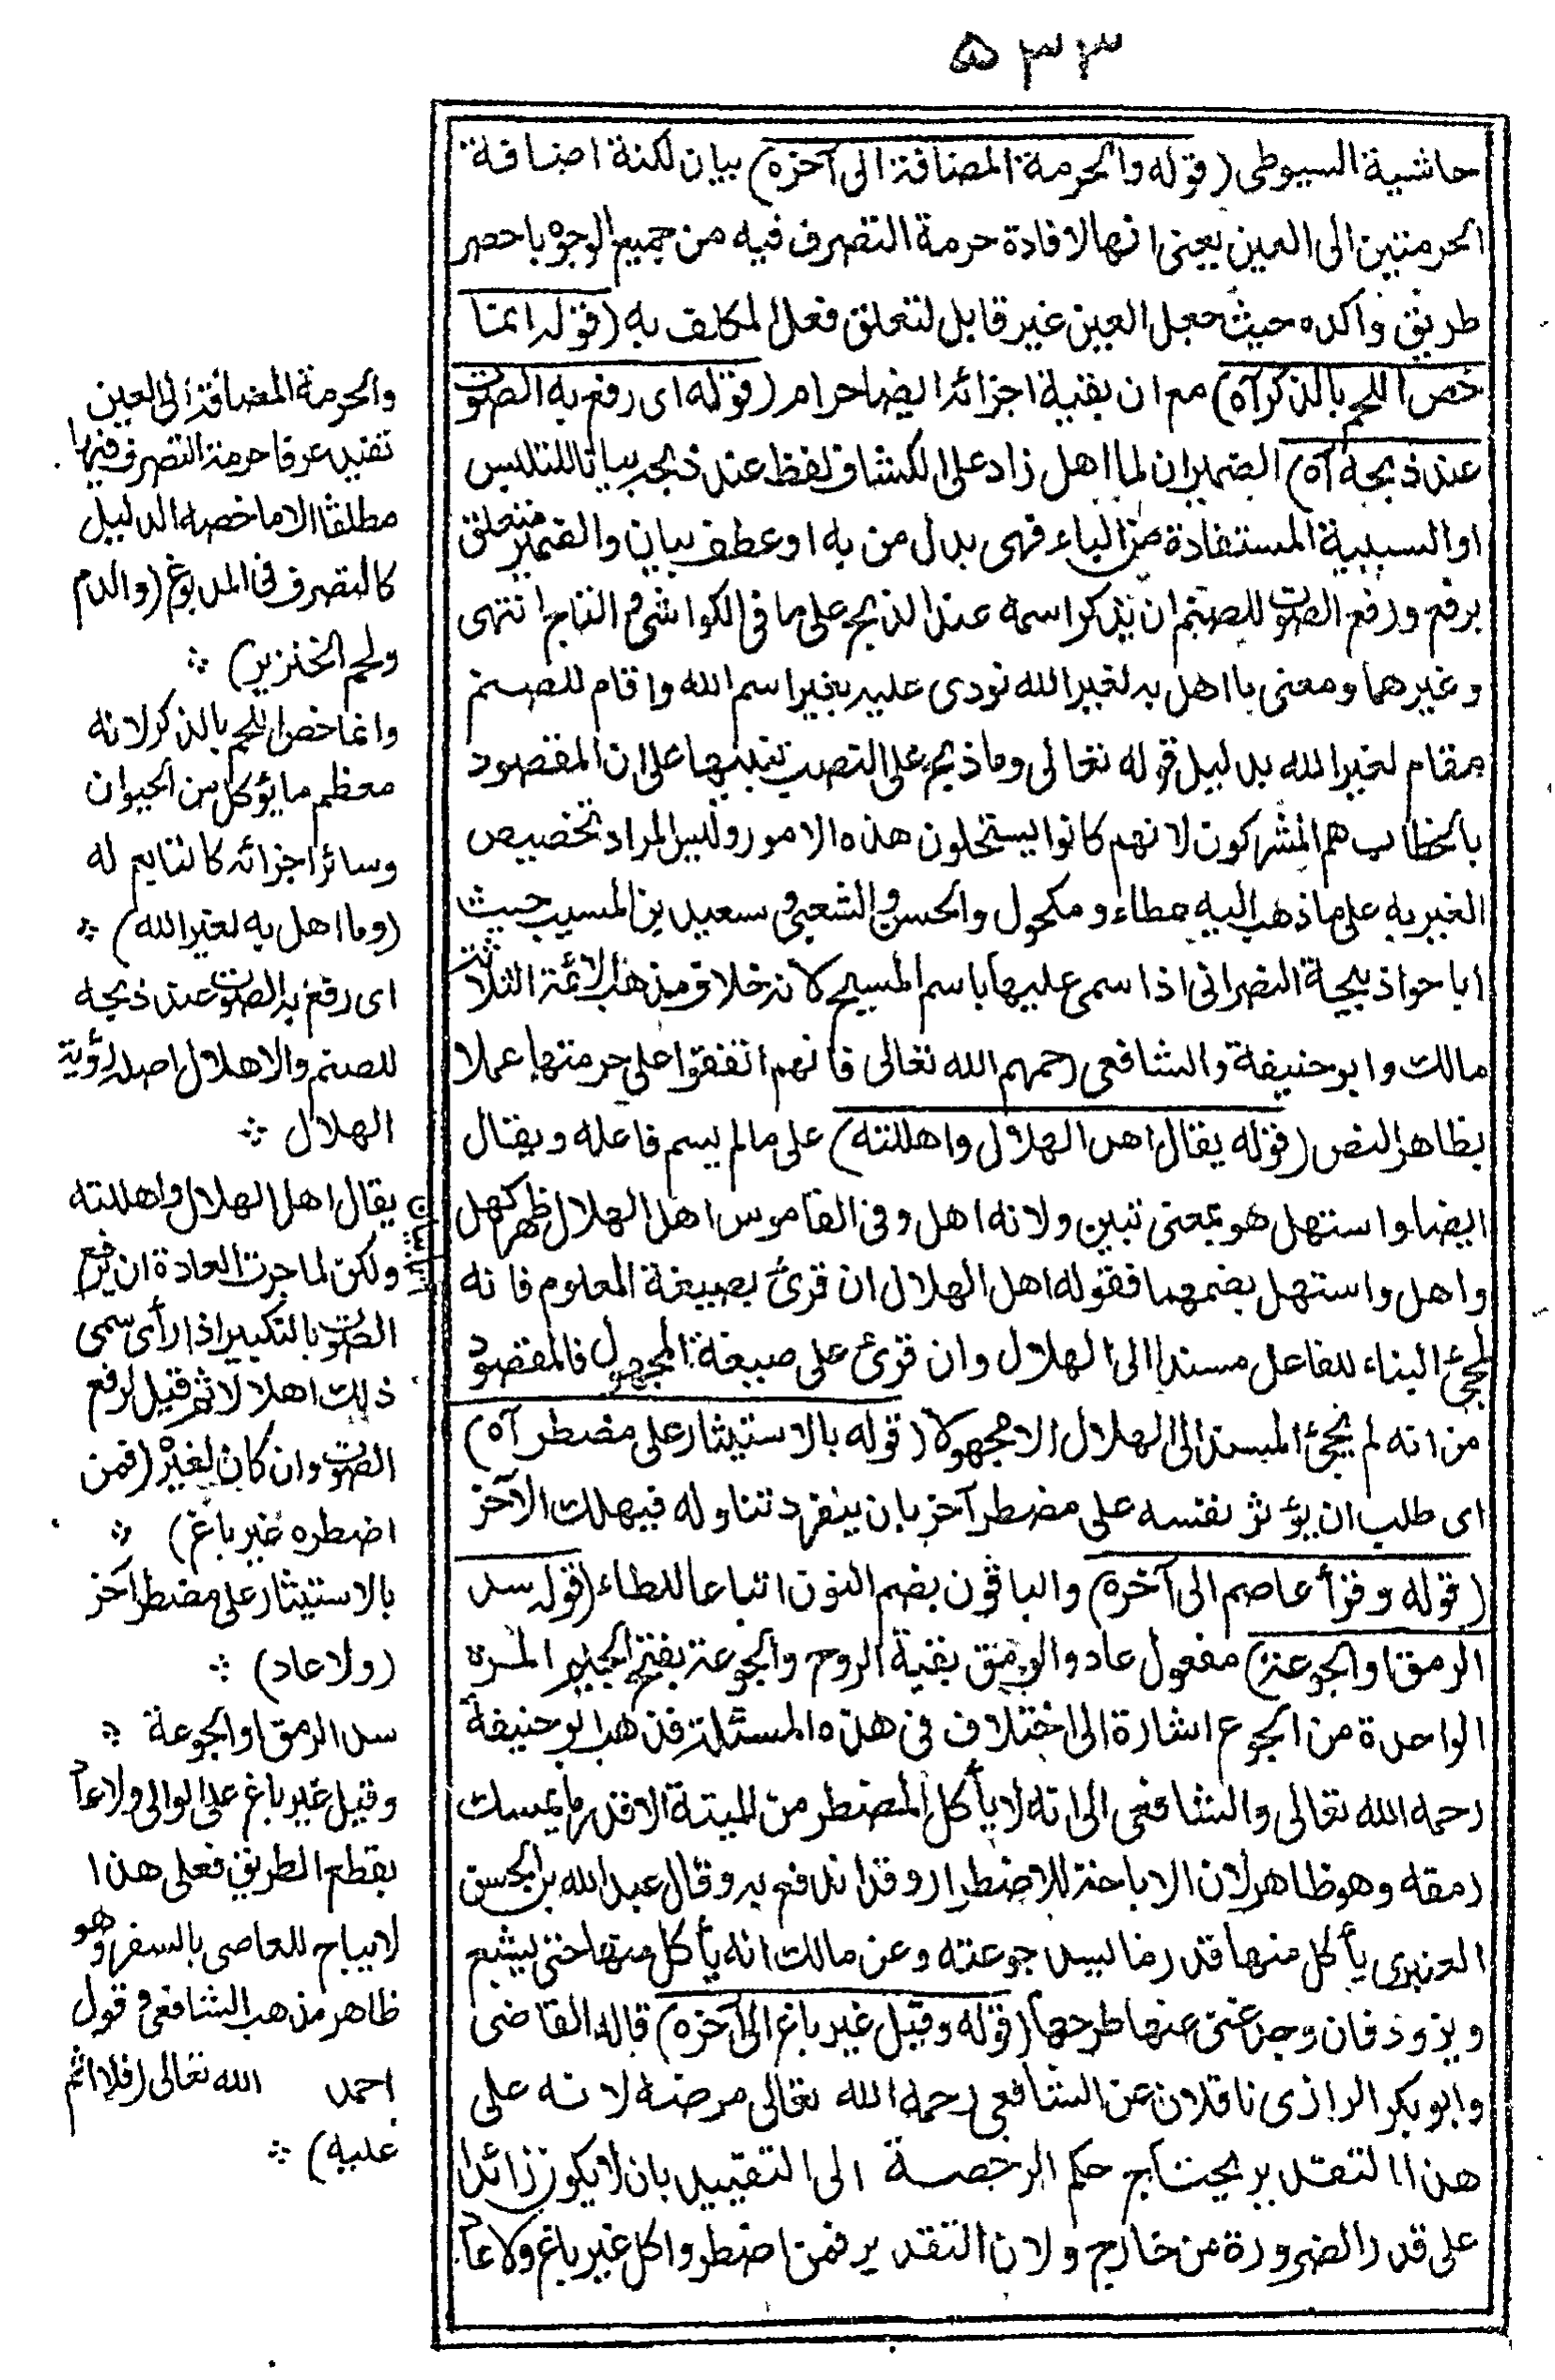 ۵۳۳
حاشية السيوطى (قوله والحرمة المضافة الى آخره) بيان لكنة اضافة
الحرمتين الى العين يعنى انها لافادة حرمة التصرف فيه من جميع الوجوه باحصر
طريق وآكده حيث جعل العين غير قابل لتعلق فعل المكلف به (قوله انما
خص اللحم بالذكر آه) مع ان بقية اجزائه ايضا حرام (قوله اى رفع به الصوت
عند ذبحه آه) الضميران لما اهل زاد على الكشاف لفظ عند ذبحه بيانا للتلبس
او السببية المستفادة من الباء فهى بدل من به او عطف بيان والضمير متعلق
برفع ورفع الصوت للصنم ان يذكر اسمه عند الذبح على ما فى الكواشى و التاج انتهى
وغيرهما ومعنى ما اهل به لغير الله نودى عليه بغير اسم الله واقام للصنم
مقام لغير الله بدليل قوله تعالى وما ذبح على النصب تنبيها على ان المقصود
بالخطاب هم المشركون لانهم كانوا يستحلون هذه الامور وليس المراد تخصيص
الغير به على ما ذهب اليه عطاء و مكحول والحسن والشعبى و سعيد بن المسيب حيث
اباحوا ذبيحة النصرانى اذا سمى عليها باسم المسيح لانه خلاف مذهب الائمة الثلاثة
مالك وابو حنيفة والشافعى رحمهم الله تعالى فانهم اتفقوا على حرمتها عملا
بظاهر النص (قوله يقال اهل الهلال واهللته) على ما لم يسم فاعله ويقال
ايضا واستهل هو بمعنى تبين ولانه اهل وفى القاموس اهل الهلال ظهر كهل
واهل واستهل بضمهما فقوله اهل الهلال ان قرئ بصيغة المعلوم فانه
لمجئ البناء للفاعل مسندا الى الهلال وان قرئ على صيغة المجهول فالمقصود
من انه لم يجئ المسند الى الهلال الا مجهولا (قوله بالاستيثار على مضطر آه)
اى طلب ان يؤثر نفسه على مضطر آخر بان ينفرد تناوله فيهلك الآخر
(قوله وقرأ عاصم الى آخره) والباقون بضم النون اتباعا للطاء (قوله سد
الرمق او الجوعة) مفعول عاد والرمق بقية الروح والجوعة بفتح الجيم المرة
الواحدة من الجوع اشارة الى اختلاف فى هذه المسئلة فذهب ابو حنيفة
رحمه الله تعالى والشافعى الى انه لا يأكل المضطر من الميتة الا قدر ما يمسك
رمقه وهو ظاهر لان الاباحة للاضطرار وقد اندفع به وقال عبد الله بن الحسن
العنبرى يأكل منها قدر ما يسد جوعته وعن مالك انه يأكل منها حتى يشبع
ويزود فان وجد غنى عنها طرحها (قوله وقيل غير باغ الى آخره) قاله القاضى
وابو بكر الرازى ناقلان عن الشافعى رحمه الله تعالى مرضه لانه على
هذا التقدير يحتاج حكم الرخصة الى التقييد بان لا يكون زائدا
على قدر الضرورة من خارج ولان التقدير فمن اضطر واكل غير باغ ولا عاد
والحرمة المضافة الى العين
تفيد عرفا حرمة التصرف فيها
مطلقا الا ما خصه الدليل
كالتصرف فى المدبوغ (والدم
ولحم الخنزير) ∴
وانما خص اللحم بالذكر لانه
معظم ما يؤكل من الحيوان
وسائر اجزائه كالتابع له
(وما اهل به لغير الله) ∴
اى رفع به الصوت عند ذبحه
للصنم والاهلال اصله رؤية
الهلال ∴
يقال اهل الهلال واهللته
ولكن لما جرت العادة ان يرفع
الصوت بالتكبير اذا رأى سمى
ذلك اهلالا ثم قيل لرفع
الصوت وان كان لغيره (فمن
اضطر غير باغ) ∴
بالاستيثار على مضطر آخر
(ولا عاد) ∴
سد الرمق او الجوعة ∴
وقيل غير باغ على الوالى ولا عاد
بقطع الطريق فعلى هذا
لا يباح للعاصى بالسفر وهو
ظاهر مذهب الشافعى و قول
احمد الله تعالى (فلا اثم
عليه) ∴